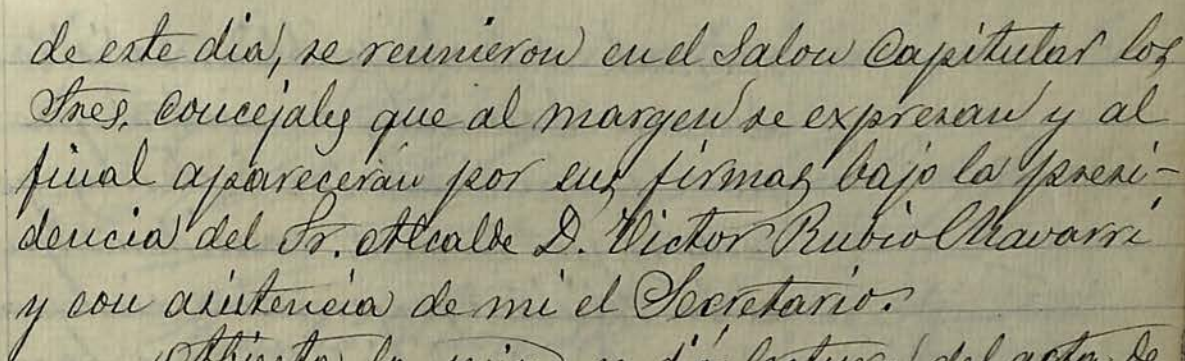 de este dia, se reunieron en el Salon Capitular los
Sres. Concejales que al margen se expresan y al
final aparecerán por sus firmas bajo la presi-
dencia del Sr. Alcalde D. Victor Rubio Chavarri
y con asistencia de mi el Secretario.
Abierta la se dió lectura del acta de